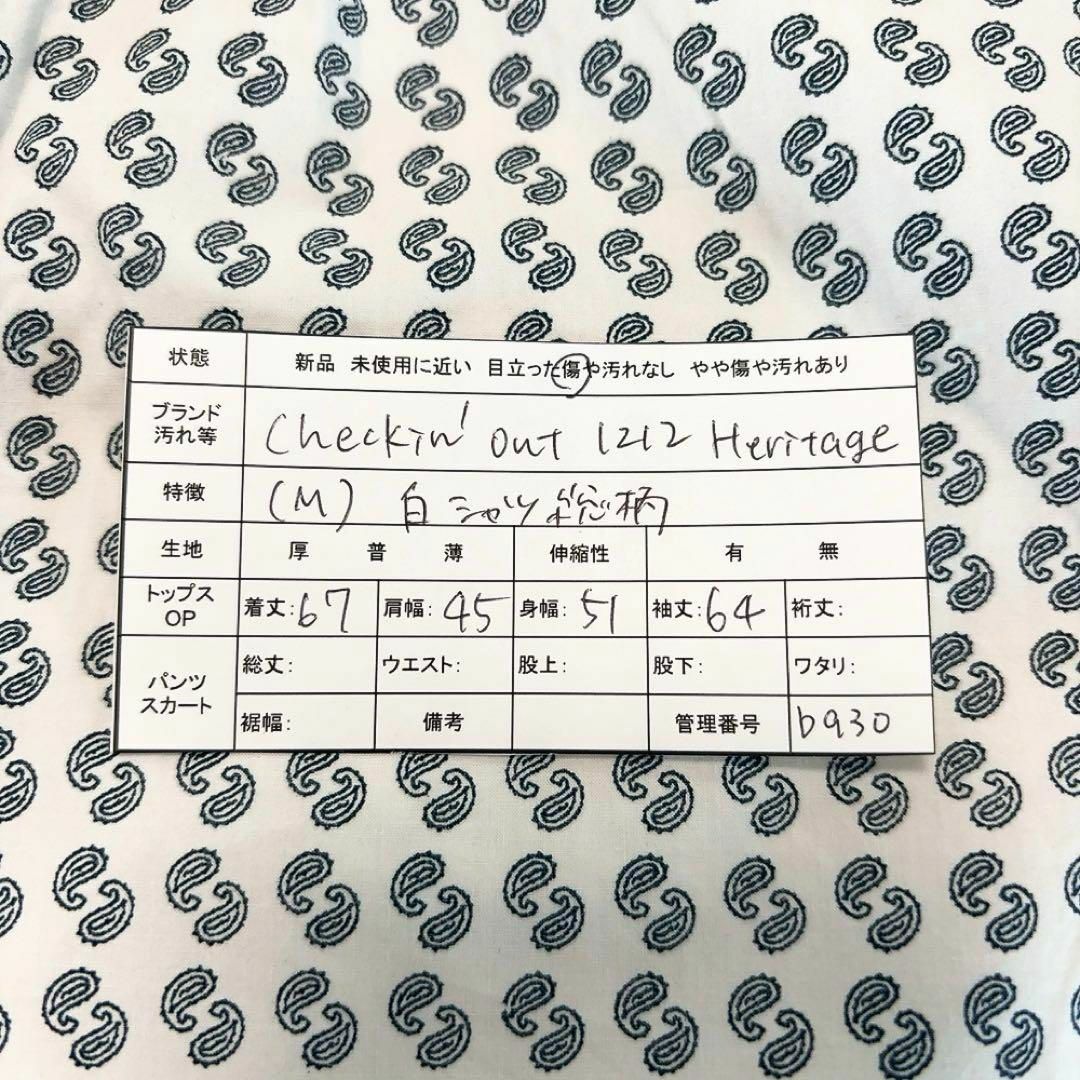 状態 新品 未使用に近い 目立った傷や汚れなし やや傷や汚れあり
ブランド
汚れ等
Checkin' out 1212 Heritage
特徴 (M) 白シャツ 総柄
生地 厚 普 薄 伸縮性 有 無
トップス
OP
着丈:67 肩幅:45 身幅:51 袖丈:64 裄丈:
パンツ
スカート
総丈: ウエスト: 股上: 股下: ワタリ:
裾幅: 備考 管理番号 b930